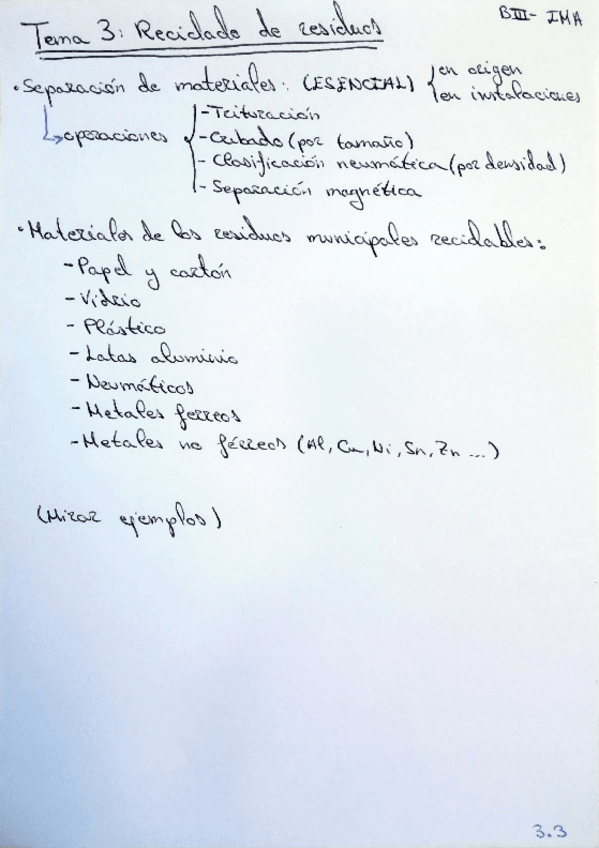 BIII - IMA
Tema 3: Reciclado de residuos
• Separación de materiales: (ESENCIAL) en origen
en instalaciones
operaciones - Trituración
- Cribado (por tamaño)
- Clasificación neumática (por densidad)
- Separación magnética
• Materiales de los residuos municipales reciclables:
- Papel y cartón
- Vidrio
- Plástico
- Latas aluminio
- Neumáticos
- Metales ferreos
- Metales no férreos (Al, Cu, Ni, Sn, Zn ...)
(Mirar ejemplos)
3.3